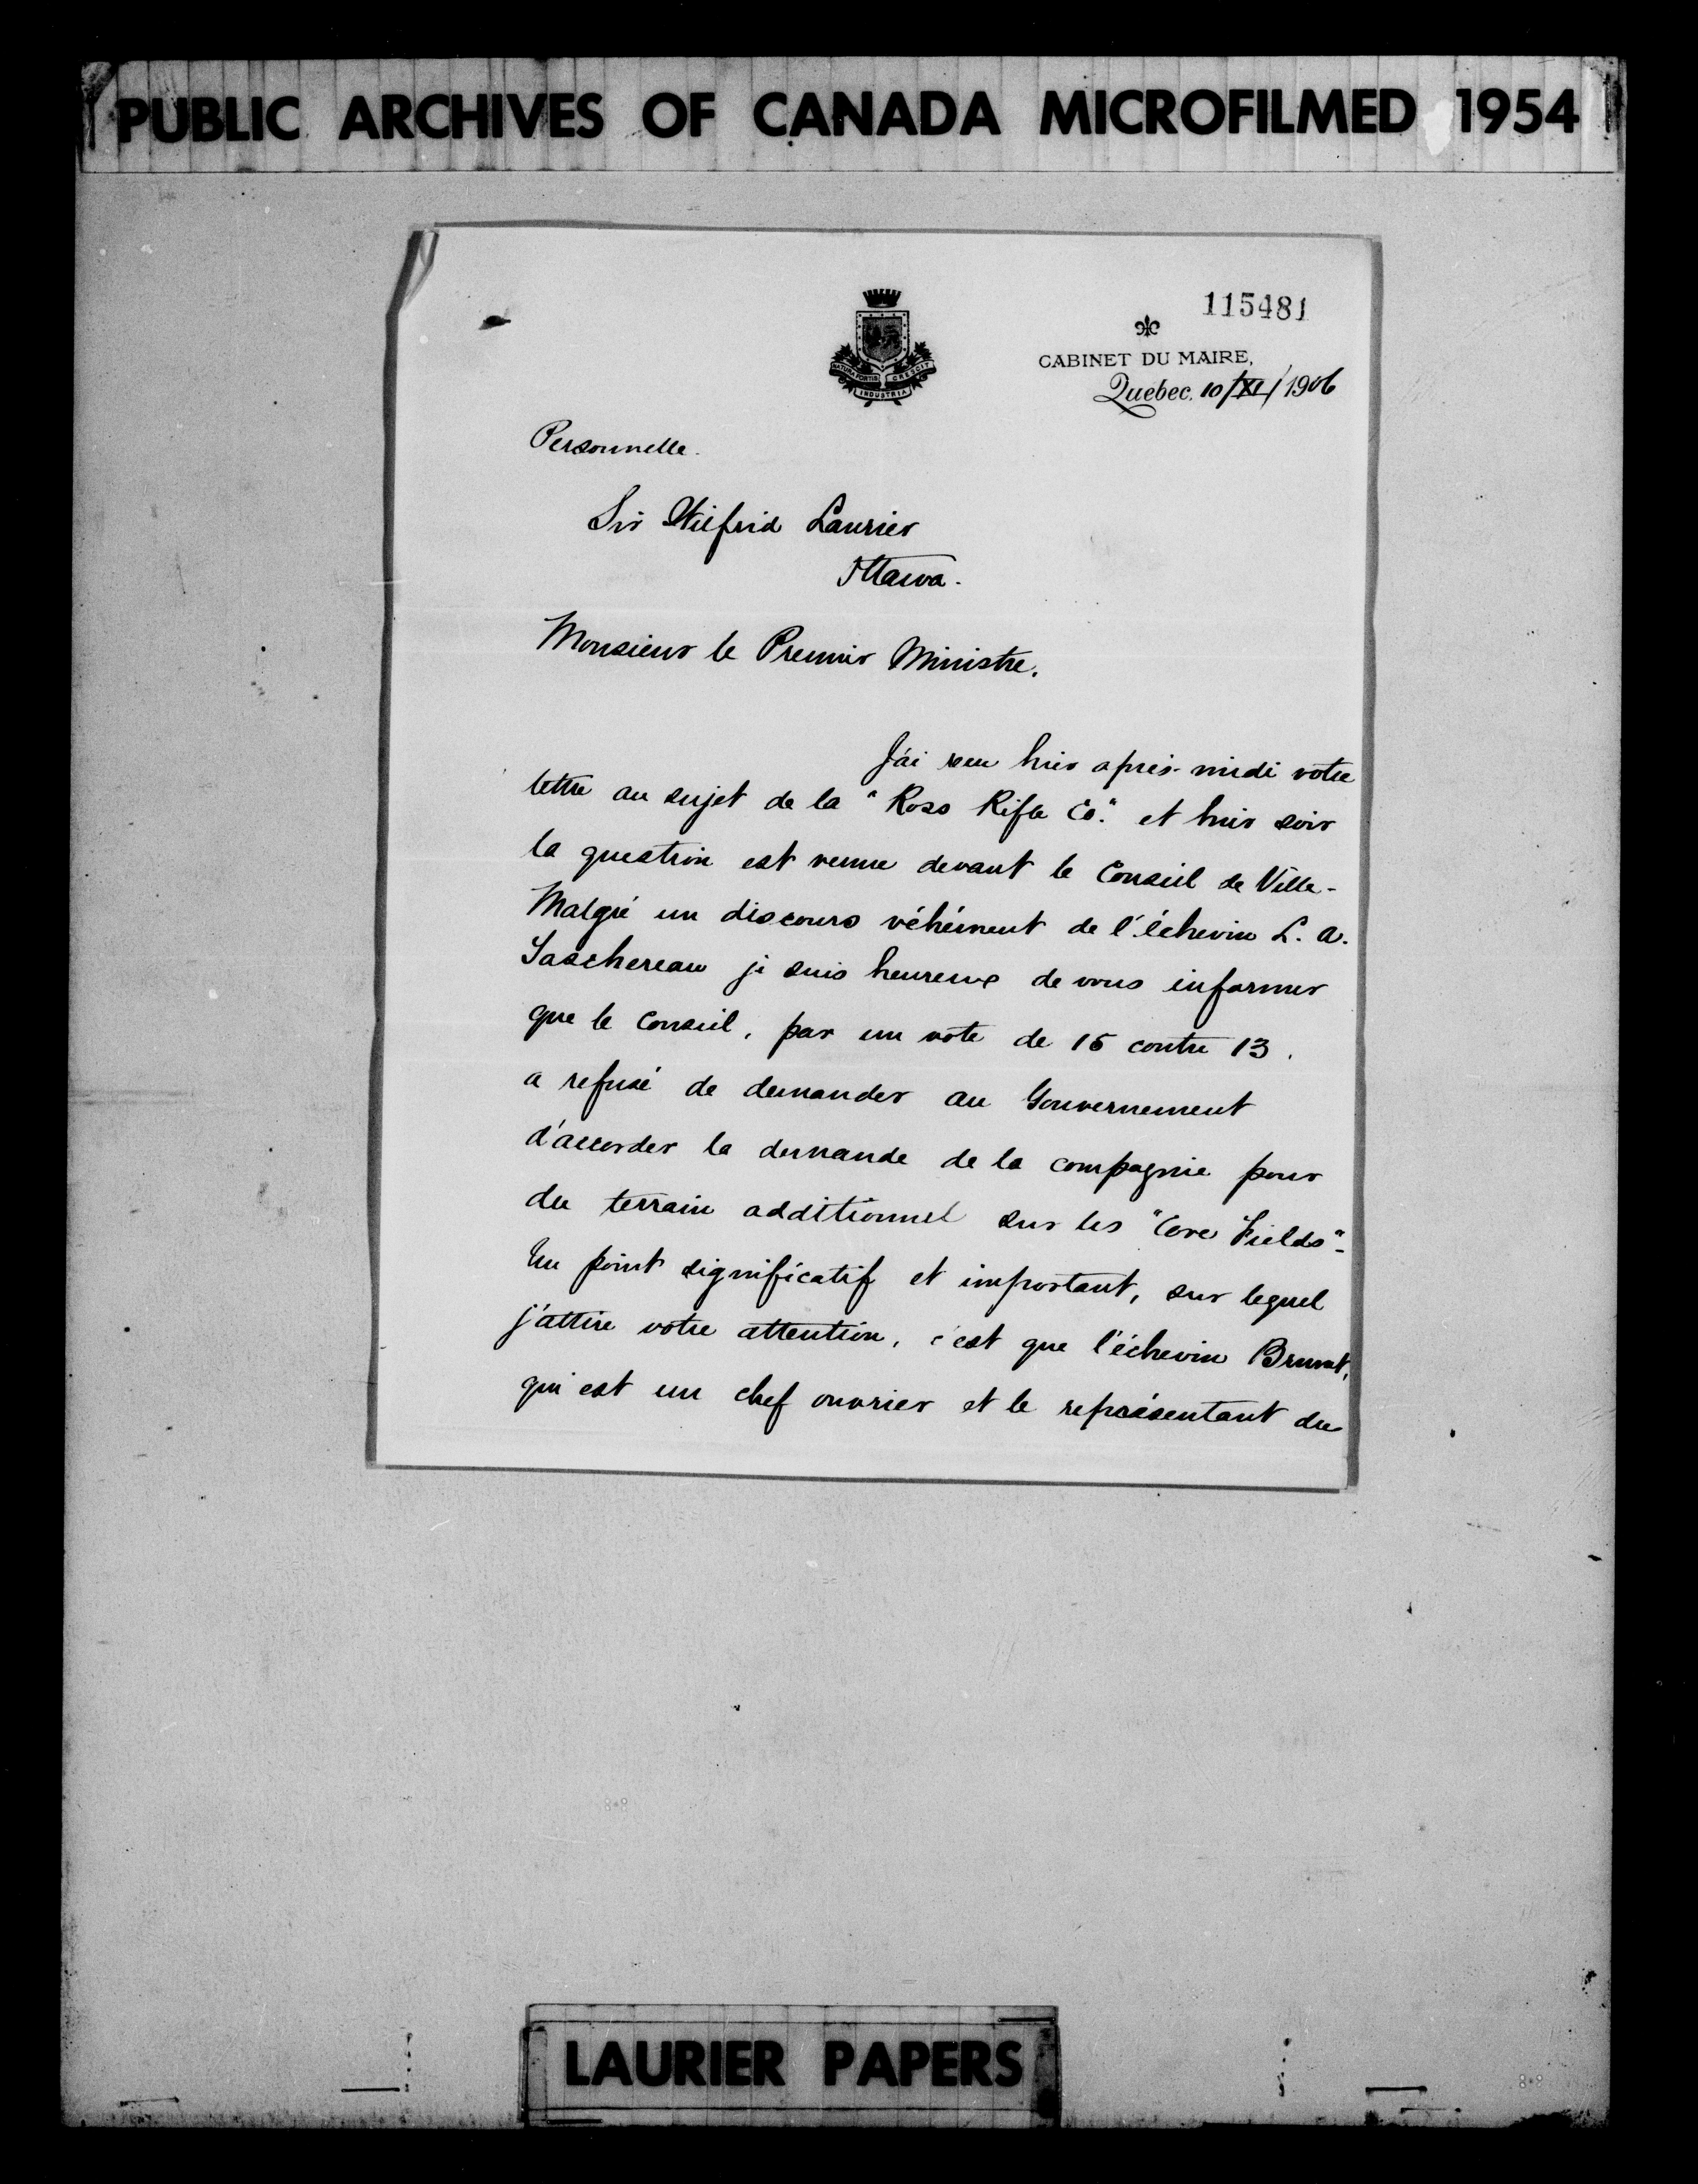 PUBLIC ARCHIVES OF CANADA MICROFILMED 1954
115481
NATURA FORTIS INDUSTRIA CRESCIT
CABINET DU MAIRE,
Quebec, 10/XI/1906
Personnelle.
Sir Wilfrid Laurier
Ottawa.
Monsieur le Premier Ministre.
J'ai reçu hier après-midi votre
lettre au sujet de la "Ross Rifle Co." et hier soir
la question est venue devant le Conseil de Ville-
Malgré un discours véhément de l'échevin L. A.
Taschereau je suis heureux de vous informer
que le Conseil, par un vote de 15 contre 13,
a refusé de demander au Gouvernement
d'accorder la demande de la compagnie pour
du terrain additionnel sur les "Cove Fields"-
Un point significatif et important, sur lequel
j'attire votre attention, c'est que l'échevin
qui est un chef ouvrier et le représentant du
LAURIER PAPERS